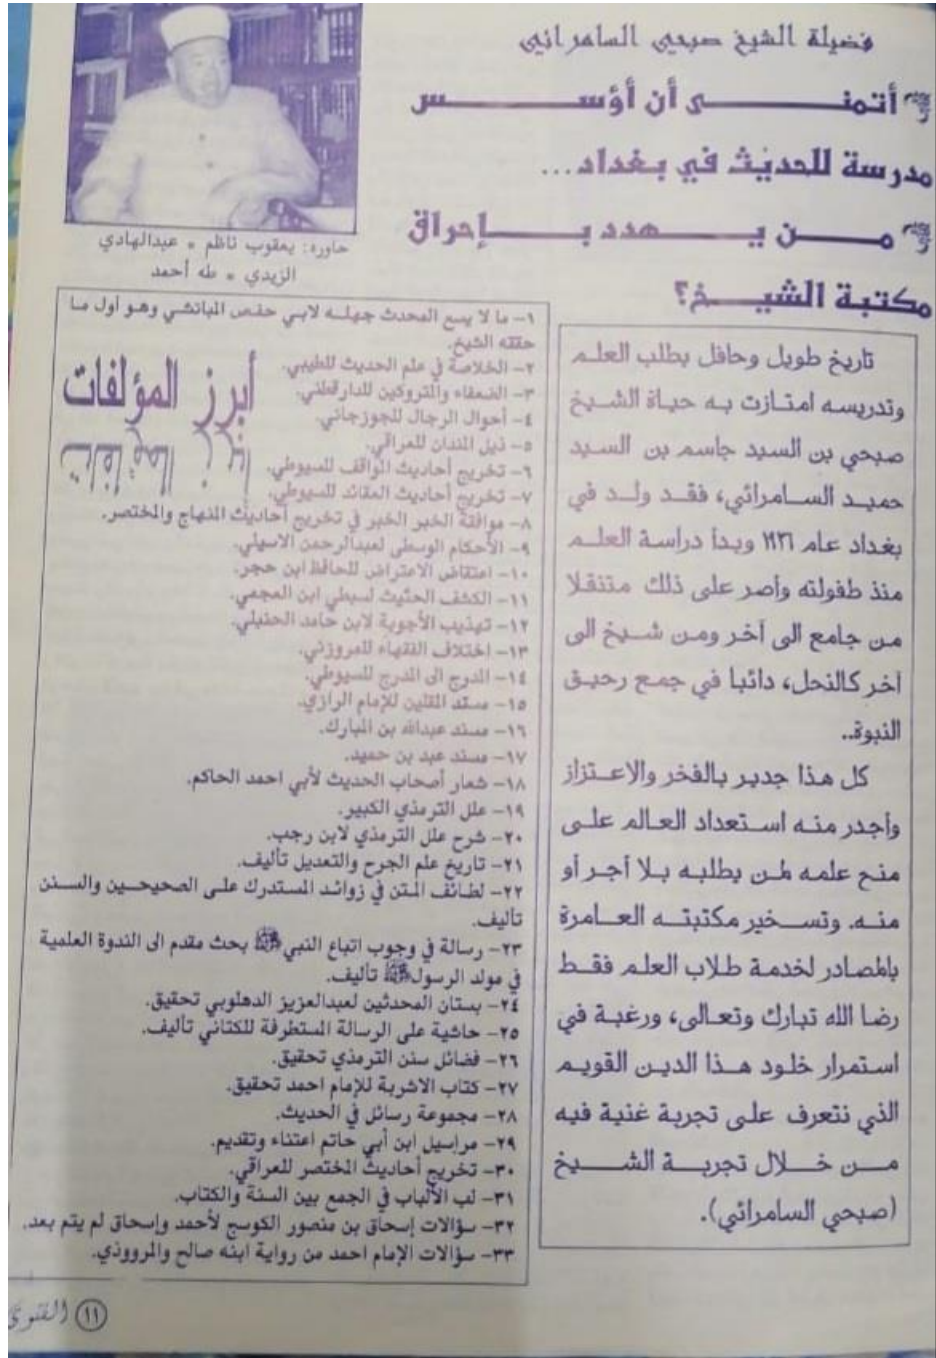 فضيلة الشيخ صبحي السامرائي
أتمنى أن أؤسس
مدرسة للحديث في بغداد...
من يهدد بإحراق
مكتبة الشيخ؟
حاوره: يعقوب ناظم * عبدالهادي
الزيدي * طه أحمد
تاريخ طويل وحافل بطلب العلم
وتدريسه امتازت به حياة الشيخ
صبحي بن السيد جاسم بن السيد
حميد السامرائي، فقد ولد في
بغداد عام ١٩٣٦ وبدأ دراسة العلم
منذ طفولته وأصر على ذلك متنقلا
من جامع الى آخر ومن شيخ الى
آخر كالنحل، دائبا في جمع رحيق
النبوة..
كل هذا جدير بالفخر والاعتزاز
وأجدر منه استعداد العالم على
منح علمه لمن يطلبه بلا أجر أو
منه. وتسخير مكتبته العامرة
بالمصادر لخدمة طلاب العلم فقط
رضا الله تبارك وتعالى، ورغبة في
استمرار خلود هذا الدين القويم
الذي نتعرف على تجربة غنية فيه
من خلال تجربة الشيخ
(صبحي السامرائي).
أبرز المؤلفات
١- ما لا يسع المحدث جهله لابي حفص الميانشي وهو أول ما
حققه الشيخ.
٢- الخلاصة في علم الحديث للطيبي.
٣- الضعفاء والمتروكين للدارقطني.
٤- أحوال الرجال للجوزجاني.
٥- ذيل للعراقي.
٦- تخريج أحاديث المواقف للسيوطي.
٧- تخريج أحاديث العقائد للسيوطي.
٨- موافقة الخبر الخبر في تخريج أحاديث المنهاج والمختصر.
٩- الأحكام الوسطى لعبدالرحمن الاسيلي.
١٠- اعتقاض الاعتراض للحافظ ابن حجر.
١١- الكشف الحثيث لسبطي ابن العجمي.
١٢- تهذيب الأجوبة لابن حامد الحنبلي.
١٣- إختلاف الفقهاء للمروزني.
١٤- المدرج الى المدرج للسيوطي.
١٥- مسند المقلين للإمام الرازي.
١٦- مسند عبدالله بن المبارك.
١٧- مسند عبد بن حميد.
١٨- شعار أصحاب الحديث لأبي احمد الحاكم.
١٩- علل الترمذي الكبير.
٢٠- شرح علل الترمذي لابن رجب.
٢١- تاريخ علم الجرح والتعديل تأليف.
٢٢- لطائف المتن في زوائد المستدرك على الصحيحين والسنن
تأليف.
٢٣- رسالة في وجوب اتباع النبي ﷺ بحث مقدم الى الندوة العلمية
في مولد الرسول ﷺ تأليف.
٢٤- بستان المحدثين لعبدالعزيز الدهلوبي تحقيق.
٢٥- حاشية على الرسالة المستطرفة للكتاني تأليف.
٢٦- فضائل سنن الترمذي تحقيق.
٢٧- كتاب الاشربة للإمام احمد تحقيق.
٢٨- مجموعة رسائل في الحديث.
٢٩- مراسيل ابن أبي حاتم اعتناء وتقديم.
٣٠- تخريج أحاديث المختصر للعراقي.
٣١- لب الألباب في الجمع بين السنة والكتاب.
٣٢- سؤالات إسحاق بن منصور الكوسج لأحمد وإسحاق لم يتم بعد.
٣٣- سؤالات الإمام احمد من رواية ابنه صالح والمرووذي.
١١ الفتوى